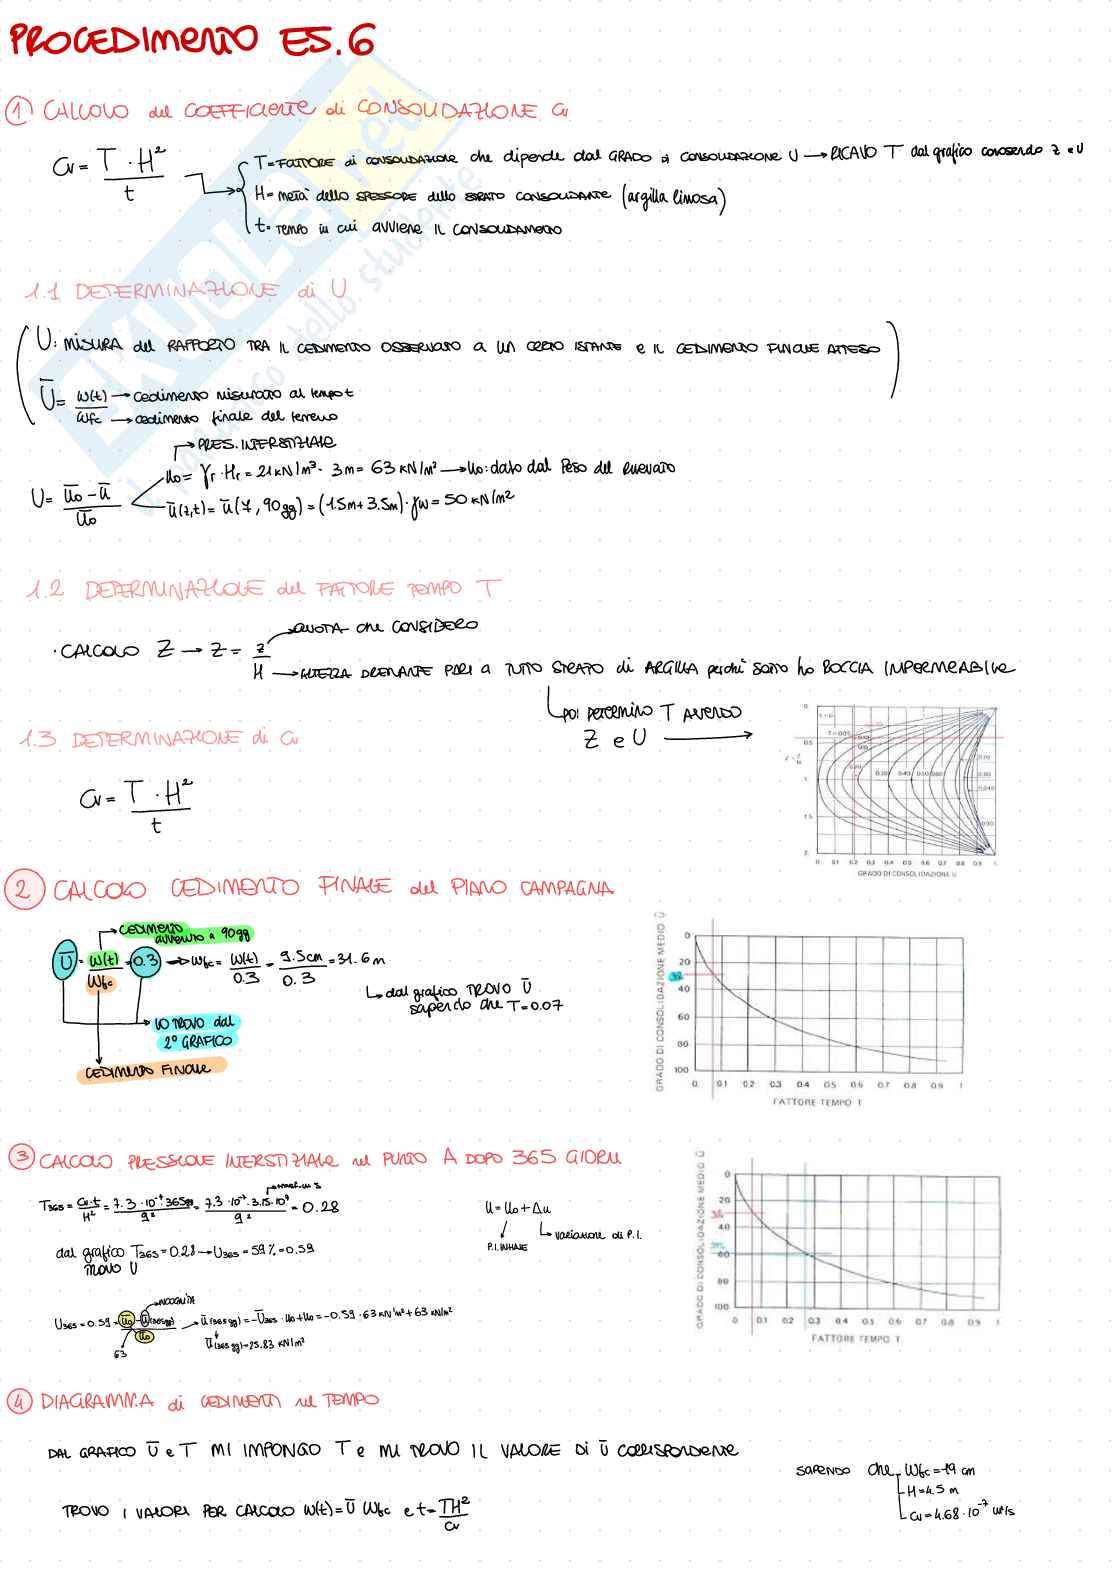 PROCEDIMENTO ES.6
1 CALCOLO del COEFFICIENTE di CONSOLIDAZIONE Cv
Cv = T · H² / t
T = FATTORE di CONSOLIDAZIONE che dipende dal GRADO di CONSOLIDAZIONE U → RICAVO T dal grafico conoscendo z e U
H = metà dello SPESSORE dello STRATO CONSOLIDANTE (argilla limosa)
t = TEMPO in cui AVVIENE IL CONSOLIDAMENTO
1.1 DETERMINAZIONE di U
U: MISURA del RAPPORTO TRA IL CEDIMENTO OSSERVATO A UN CERTO ISTANTE e IL CEDIMENTO FINALE ATTESO
Ū = w(t) / wfc
w(t) → cedimento misurato al tempo t
wfc → cedimento finale del terreno
→ PRES. INTERSTIZIALE
U = (ū0 - ū) / ū0
u0 = γr · Hr = 21 kN/m³ · 3m = 63 kN/m² → u0: dato dal Peso del rilevato
ū(z,t) = ū(7, 90gg) = (1.5m + 3.5m) · γw = 50 kN/m²
1.2 DETERMINAZIONE del FATTORE TEMPO T
· CALCOLO Z → Z = z / H
→ QUOTA che CONSIDERO
→ ALTEZZA DRENANTE PARI A TUTTO STRATO di ARGILLA perché sotto ho ROCCIA IMPERMEABILE
POI DETERMINO T AVENDO
Z e U →
1.3 DETERMINAZIONE di Cv
Cv = T · H² / t
GRADO DI CONSOLIDAZIONE U
2 CALCOLO CEDIMENTO FINALE del PIANO CAMPAGNA
→ CEDIMENTO AVVENUTO a 90gg
Ū = w(t) / wfc = 0.3 → wfc = w(t) / 0.3 = 9.5cm / 0.3 = 31.6 m
→ dal grafico TROVO Ū
sapendo che T = 0.07
LO TROVO dal
2° GRAFICO
CEDIMENTO FINALE
GRADO DI CONSOLIDAZIONE MEDIO Ū
0
20
40
60
80
100
0. 0.1 0.2 0.3 0.4 0.5 0.6 0.7 0.8 0.9 1
FATTORE TEMPO T
3 CALCOLO PRESSIONE INTERSTIZIALE nel PUNTO A DOPO 365 GIORNI
T365 = Cv·t / H² = 7.3 · 10⁻⁷ · 365gg / 9² = 7.3 · 10⁻⁷ · 3.15 · 10⁷ / 9² = 0.28
u = u0 + Δu
P.I. INIZIALE
→ variazione di P.I.
dal grafico T365 = 0.28 → U365 = 59% = 0.59
TROVO U
→ INCOGNITA
U365 = 0.59 = (ū0 - ū(365gg)) / ū0 → ū(365gg) = -Ū365 · u0 + u0 = -0.59 · 63 kN/m² + 63 kN/m²
63
ū(365gg) = 25.83 kN/m²
GRADO DI CONSOLIDAZIONE MEDIO Ū
0
20
40
80
100
0 0.1 0.2 0.3 0.4 0.5 0.6 0.7 0.8 0.9 1
FATTORE TEMPO T
4 DIAGRAMMA di CEDIMENTI nel TEMPO
DAL GRAFICO Ū e T MI IMPONGO T e MI TROVO IL VALORE DI Ū CORRISPONDENTE
SAPENDO che wfc = 19 cm
H = 4.5 m
Cv = 4.68 · 10⁻⁷ m²/s
TROVO I VALORI PER CALCOLO w(t) = Ū wfc e t = TH² / Cv